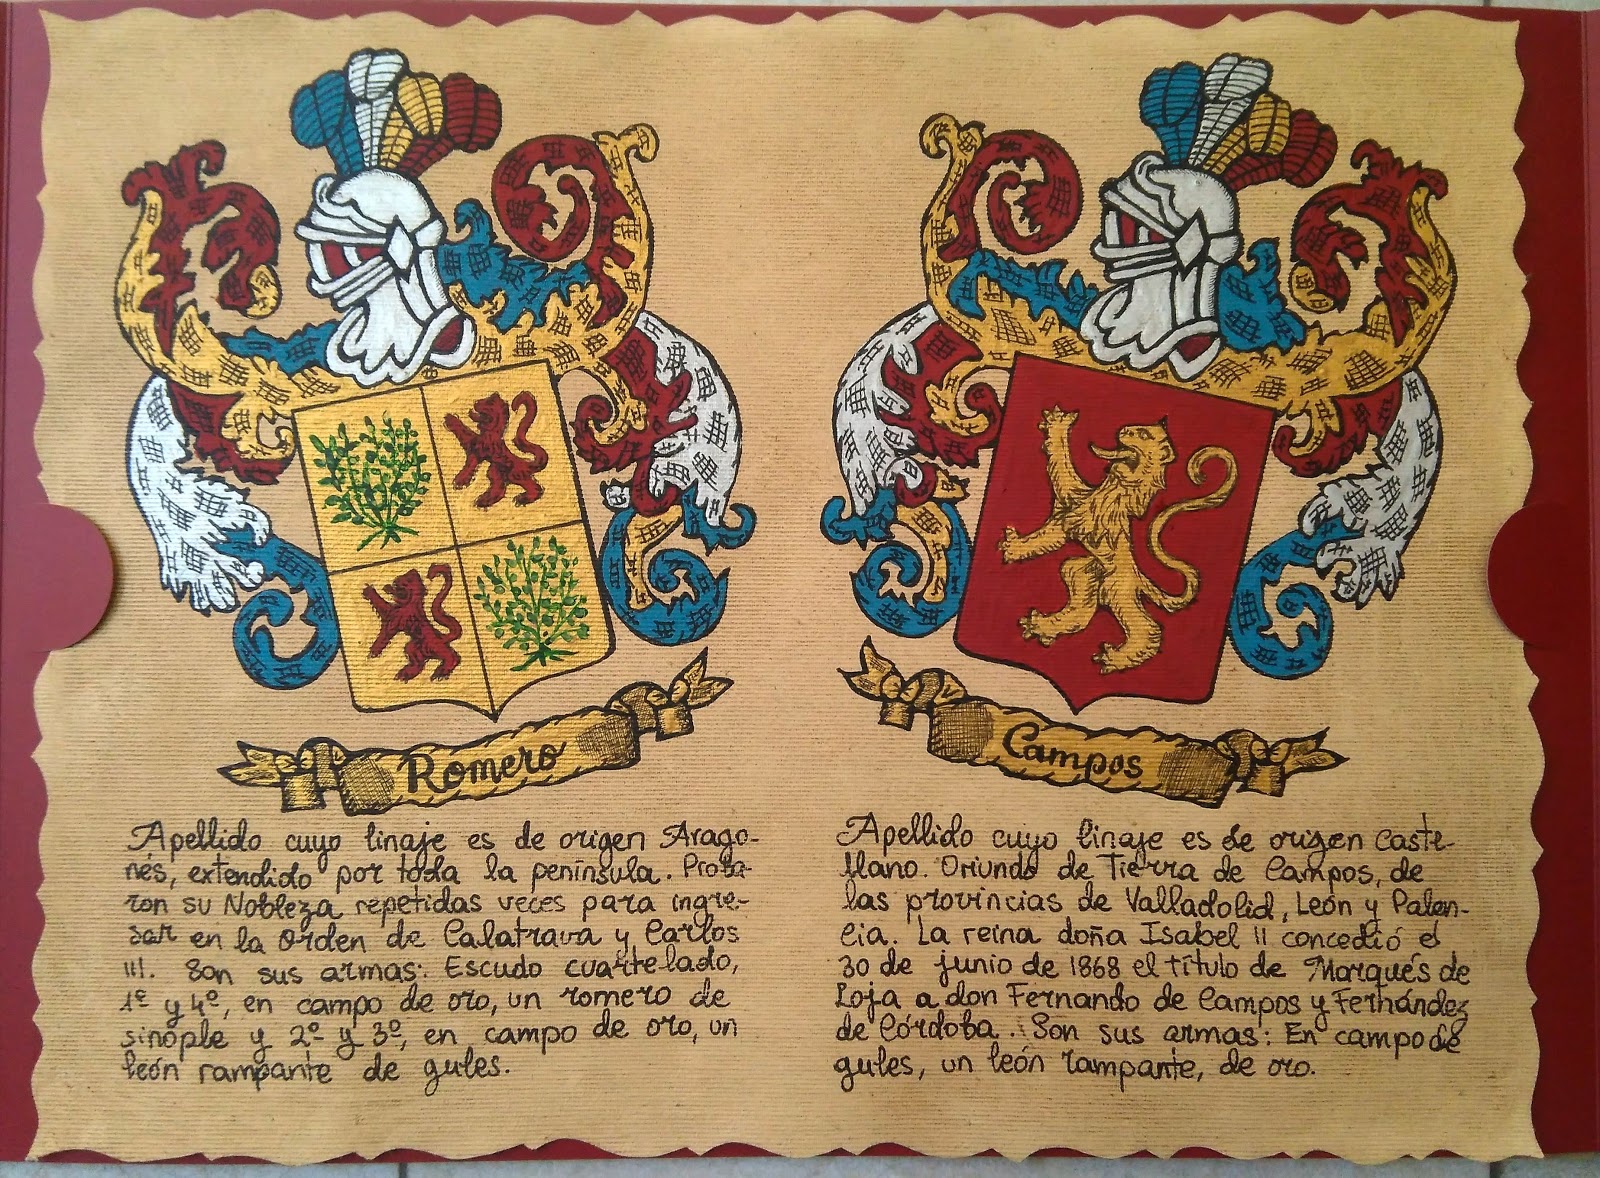 Romero
Apellido cuyo linaje es de origen Arago-
nés, extendido por toda la península. Proba-
ron su Nobleza repetidas veces para ingre-
sar en la Orden de Calatrava y Carlos
III. Son sus armas: Escudo cuartelado,
1º y 4º, en campo de oro, un romero de
sinople y 2º y 3º, en campo de oro, un
león rampante de gules.
Campos
Apellido cuyo linaje es de origen Caste-
llano. Oriundo de Tierra de Campos, de
las provincias de Valladolid, León y Palen-
cia. La reina doña Isabel II concedió el
30 de junio de 1868 el título de Marqués de
Loja a don Fernando de Campos y Fernández
de Córdoba. Son sus armas: En campo de
gules, un león rampante, de oro.